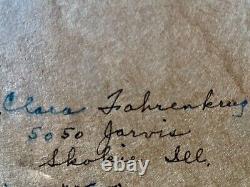 Clara Fahrenkrug
5050 Jarvis
Skokie Ill.